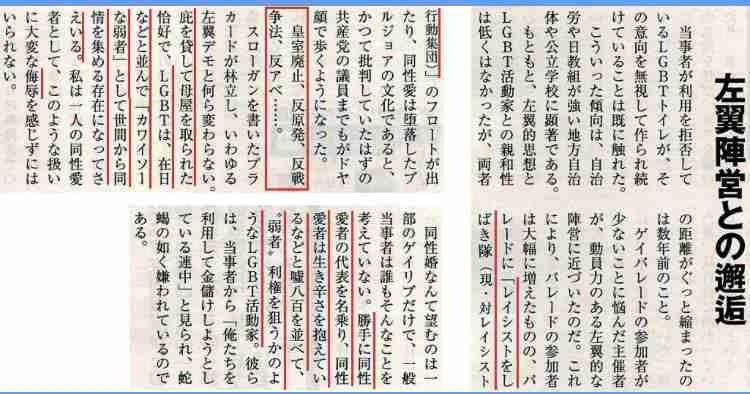 左翼陣営との邂逅
当事者が利用を拒否して
いるLGBTトイレが、そ
の意向を無視して作られ続
けていることは既に触れた。
こういった傾向は、自治
労や日教組が強い地方自治
体や公立学校に顕著である。
もともと、左翼的思想と
LGBT活動家との親和性
は低くはなかったが、両者
の距離がぐっと縮まったの
は数年前のこと。
ゲイパレードの参加者が
少ないことに悩んだ主催者
が、動員力のある左翼的な
陣営に近づいたのだ。これ
により、パレードの参加者
は大幅に増えたものの、パ
レードに「レイシストをし
ばき隊(現・対レイシスト
行動集団)」のフロートが出
たり、同性愛は堕落したブ
ルジョアの文化であると、
かつて批判していたはずの
共産党の議員までもがドヤ
顔で歩くようになった。
皇室廃止、反原発、反戦
争法、反アベ……。
スローガンを書いたプラ
カードが林立し、いわゆる
左翼デモと何ら変わらない。
庇を貸して母屋を取られた
恰好で、LGBTは、在日
などと並んで「カワイソー
な弱者」として世間から同
情を集める存在になってさ
えいる。私は一人の同性愛
者として、このような扱い
に大変な侮辱を感じずには
いられない。
同性婚なんて望むのは一
部のゲイリブだけで、一般
当事者は誰もそんなことを
考えていない。勝手に同性
愛者の代表を名乗り、同性
愛者は生き辛さを抱えてい
るなどと嘘八百を並べて、
〝弱者〟利権を狙うかのよ
うなLGBT活動家。彼ら
は、当事者から「俺たちを
利用して金儲けしようとし
ている連中」と見られ、蛇
蝎の如く嫌われているので
ある。